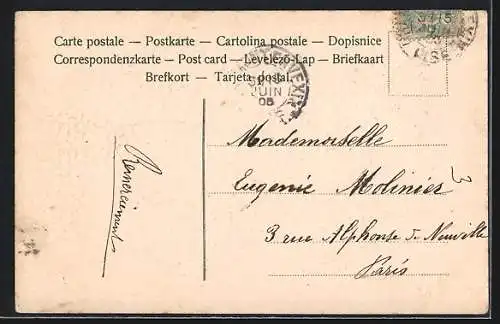 Carte postale — Postkarte — Cartolina postale — Dopisnice
Correspondenzkarte — Post card — Levelező-Lap — Briefkaart
Brefkort — Tarjeta postal.
JUIN
05
Remerciements
Mademoiselle
Eugenie Molinier
3
3 rue Alphonse de Neuville
Paris